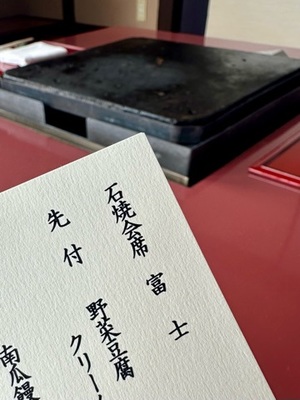 石焼会席 富士
先付
野菜豆腐
クリー
南瓜饅